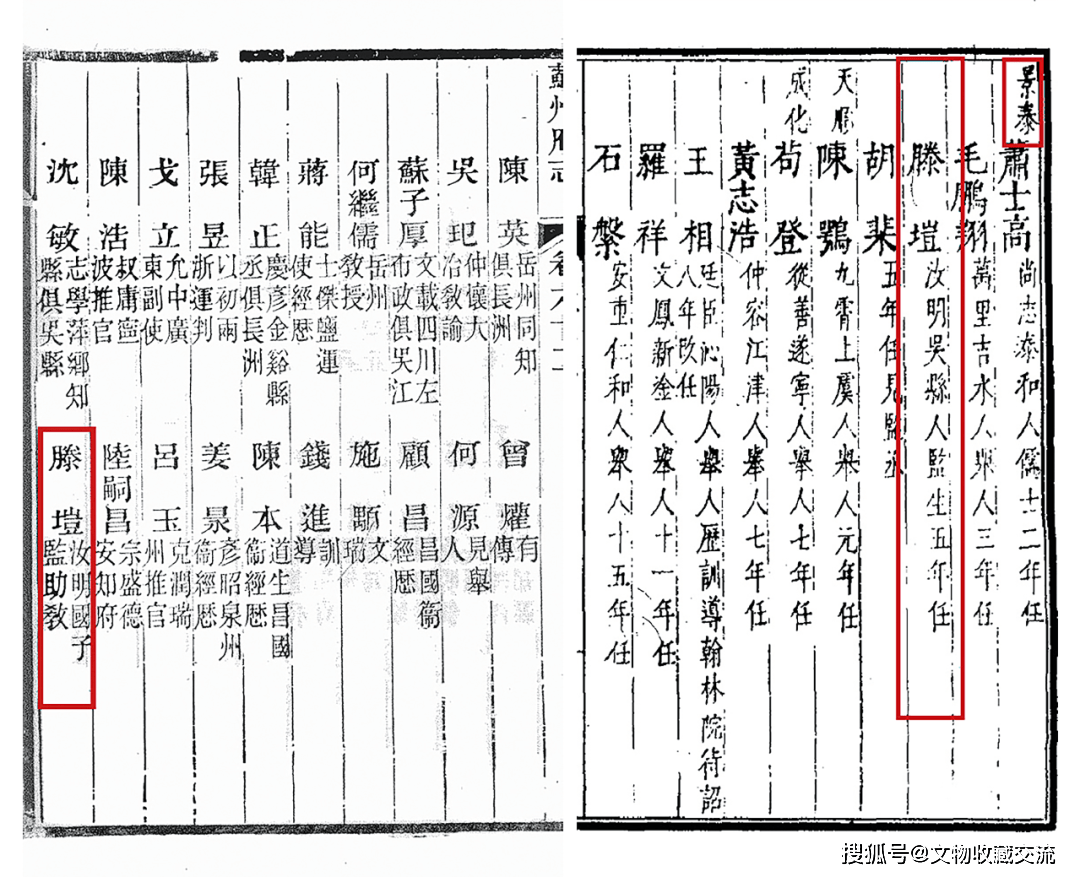 景泰 蕭士高 尚志泰和人儒士二年任
毛鵬翔 萬里吉水人舉人三年任
滕塏 汝明吳縣人監生五年任
胡棐 五年任見監丞
天順 陳鶚 九霄上虞人舉人元年任
成化 荀登 從善遂寧人舉人七年任
黃志浩 仲容江津人舉人七年任
王相 廷臣沁陽人舉人歷訓導翰林院待詔八年改任
羅祥 文鳳新淦人舉人十一年任
石槃 安重仁和人舉人十五年任
蘇州府志 卷六十二
陳英 岳州同知俱長洲 曾爟 有傳
吳玘 仲懷大冶敎諭 何源 見舉人
蘇子厚 文載四川左布政俱吳江 顧昌 昌國衞經歷
何繼儒 岳州敎授 施顒 文瑞
蔣能 士傑鹽運使經歷 錢進 訓導
韓正 慶彥金谿縣丞俱長洲 陳本 道生昌國衞經歷
張昱 以初兩浙運判 姜景 彥昭泉州衞經歷
戈立 允中廣東副使 呂玉 克潤瑞州推官
陳浩 叔庸寧波推官 陸嗣昌 宗盛德安知府
沈敏 志學萍鄉知縣俱吳縣 滕塏 汝明國子監助敎
搜狐号@文物收藏交流